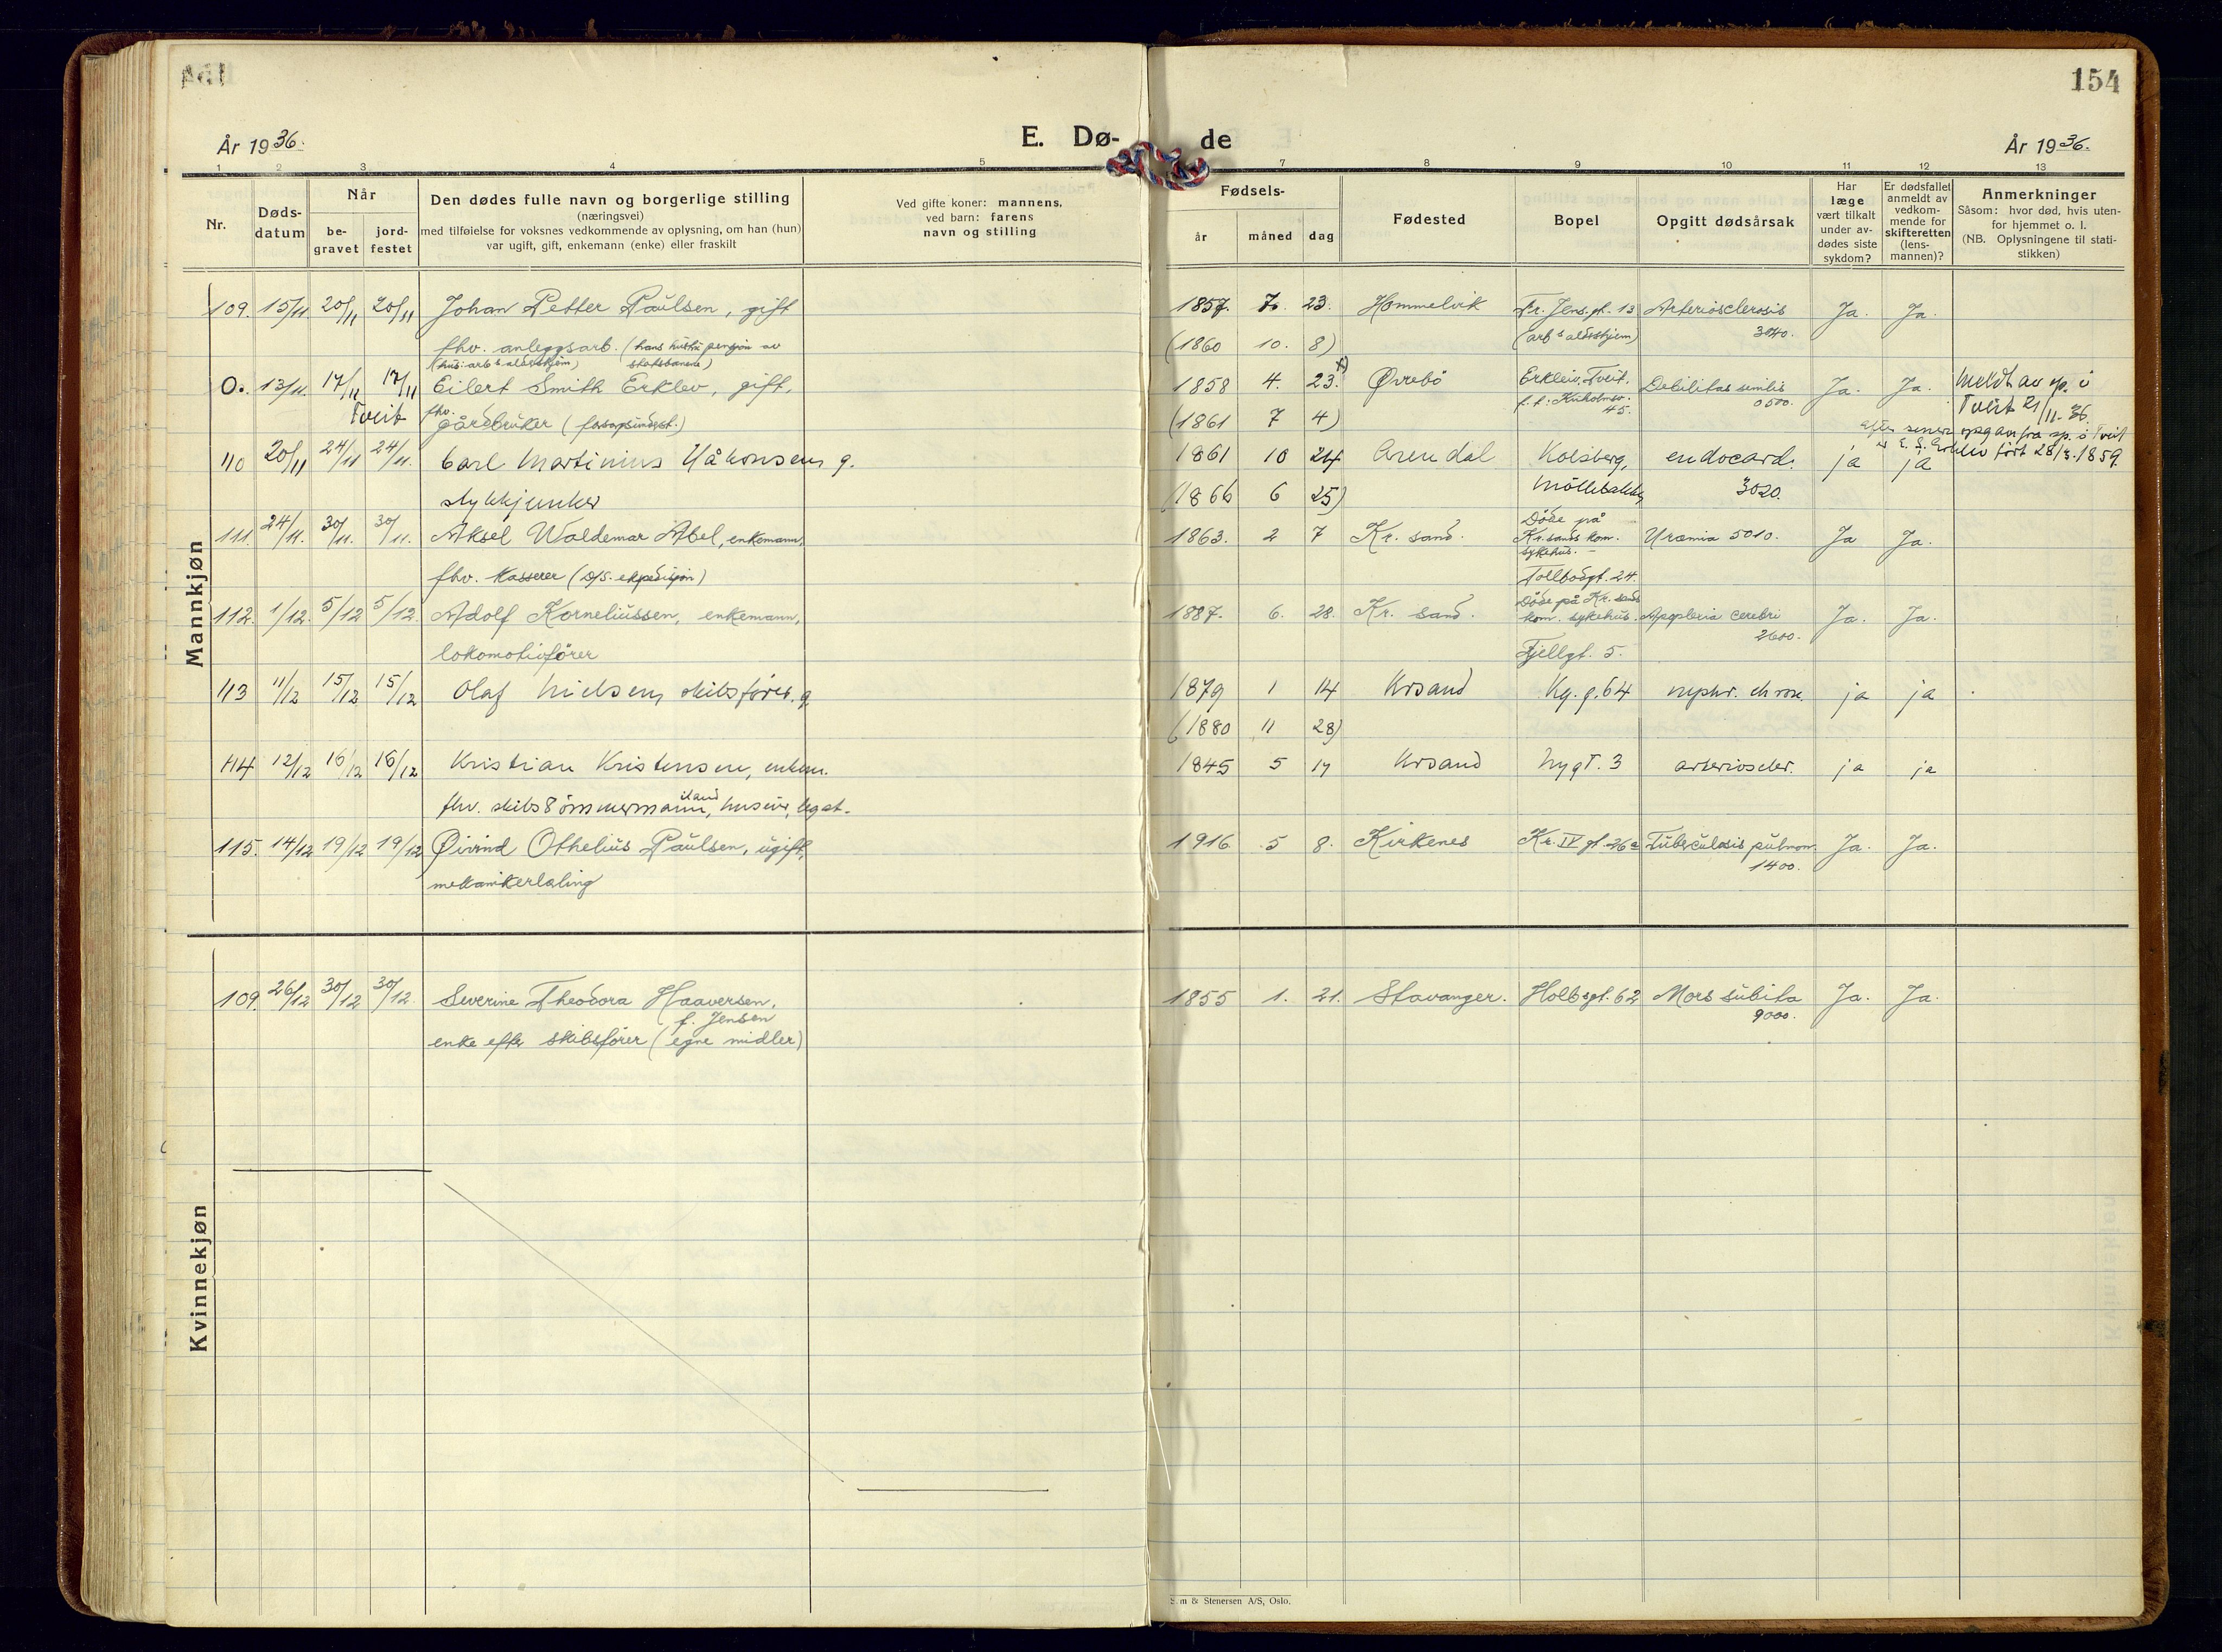 154
År 1936.
E. Dø-
de
År 1936.
1 2 3 4 5 7 8 9 10 11 12 13
Nr.
Døds-
datum
Når
be-
gravet
jord-
festet
Den dødes fulle navn og borgerlige stilling
(næringsvei)
med tilføielse for voksnes vedkommende av oplysning, om han (hun)
var ugift, gift, enkemann (enke) eller fraskilt
Ved gifte koner: mannens,
ved barn: farens
navn og stilling
Fødsels-
år
måned
dag
Fødested
Bopel
Opgitt dødsårsak
Har
læge
vært tilkalt
under av-
dødes siste
sykdom?
Er dødsfallet
anmeldt av
vedkom-
mende for
skifteretten
(lens-
mannen)?
Anmerkninger
Såsom: hvor død, hvis uten-
for hjemmet o. l.
(NB. Oplysningene til stati-
stikken)
Mannkjøn
109. 15/11 20/11 20/11 Johan Petter Paulsen, gift 1857. 7. 23. Hommelvik Fr. Jens.gt. 13 Arteriosclerosis Ja. Ja.
fhv. anleggsarb. (hans hustru pensjon av (1860 10. 8) (arb s aldershjem) 3040.
(hus: arb s aldershjem) statsbanene)
O. 13/11. 17/11 17/11 Eilert Smith Erklev, gift, 1858 4. 23. x) Øvrebö Erkleiv, Tveit, Debilitas senilis Ja. Ja. Meldt av sp. i
Tveit fhv. gårdbruker (forsorgsunderst.) (1861 7 4) f. t: Kuholmsv. 45. 0500. Tveit 21/11-36.
efter senere opg av fra sp. i Tveit
er E. S. Erklev født 28/3.1859.
110 20/11 24/11 24/11. Carl Martinius Håkonsen g. 1861 10 24 Arendal Kolsberg, endocard. ja ja
stykkjunker (1866 6 25) Möllebakken 3020.
111. 24/11. 30/11. 30/11. Aksel Waldemar Abel, enkemann, 1863. 2 7 Kr. sand. Döde på Kr.sands kom. sykehus. - Uræmia 5010. Ja Ja.
fhv. Kasserer (D/S. ekspedisjon) Tollbodgt. 24.
112. 1/12. 5/12 5/12. Adolf Korneliussen, enkemann, 1887. 6. 28. Kr. sand. Döde på Kr. sands kom. sykehus. Apoplexia cerebri Ja. Ja.
lokomotivförer Fjellgt. 5. 2600.
113 11/12 15/12 15/12 Olaf Nielsen, skibsförer. g 1879 1 14 Krsand Kg. g. 64 nephr. chron. ja ja
(1880 11 28)
114 12/12 16/12 16/12 Kristian Kristensen, enkem. 1845 5 17 Krsand Nygt. 3 arterioscler. ja ja
fhv. skibstömmermann,
115. 14/12 19/12 19/12 Øivind Othelius Paulsen, ugift, 1916. 5 8. Kirkenes Kr. IV gt. 26a Tuberculosis pulmon. Ja. Ja.
mekanikerlærling 1400.
Kvinnekjøn
109. 26/12 30/12 30/12. Severine Theodora Haaversen, 1855 1. 21. Stavanger. Holbgt. 62 Mors subita Ja. Ja.
f. Jensen 9000.
enke efter skibsförer (egne midler)
& Stenersen A/S, Oslo.